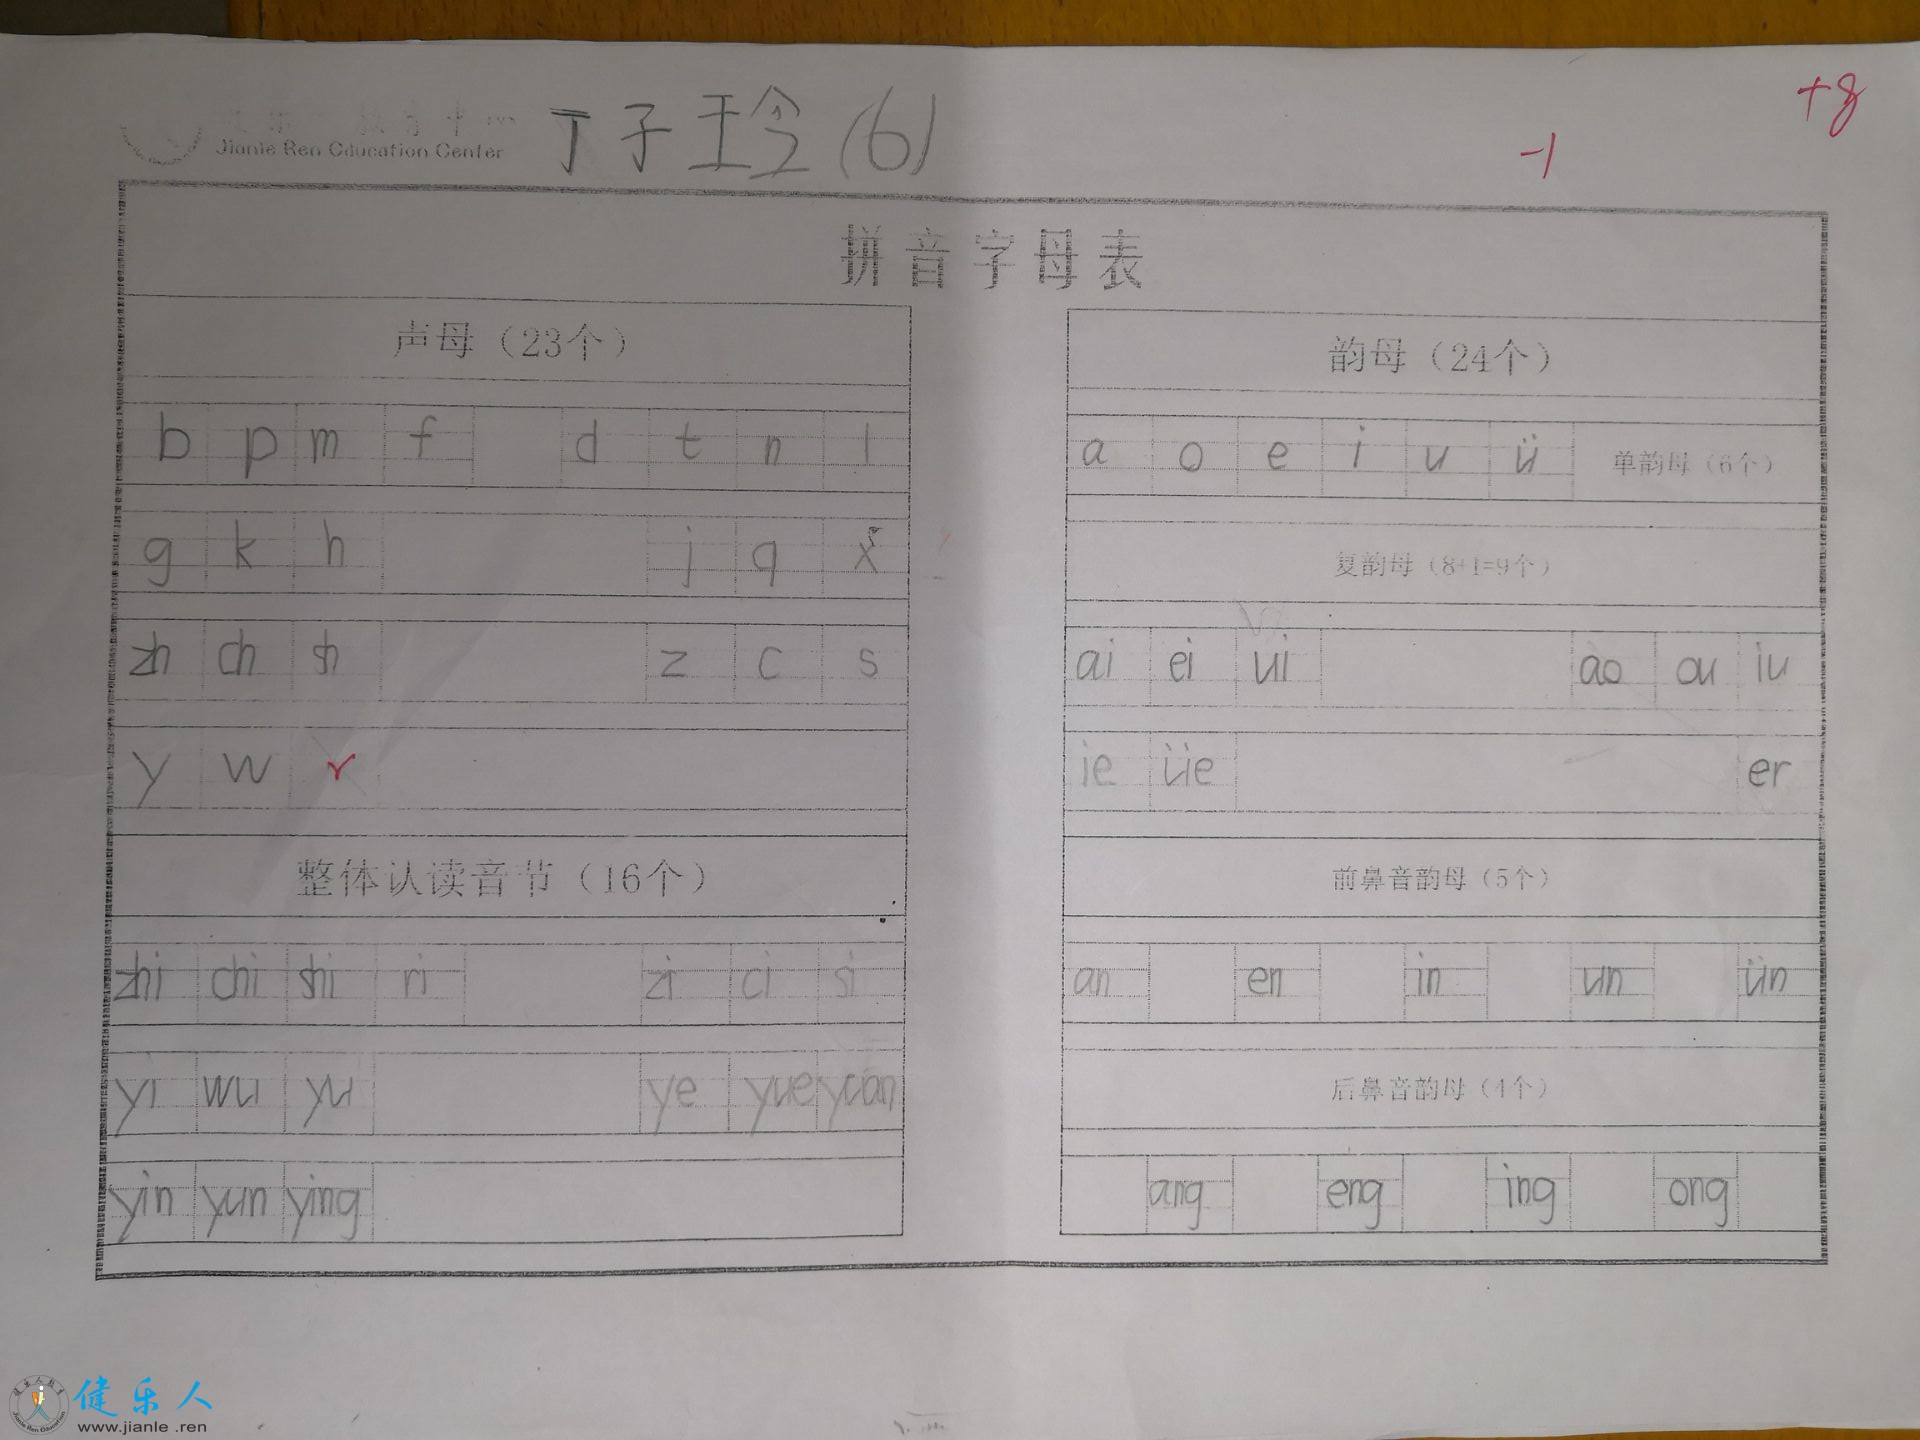 Jianle Ren Education Center 丁子玲(6) -1 +8
拼音字母表
声母（23个）
b p m f d t n l
g k h j q x
zh ch sh z c s
y w r
整体认读音节（16个）
zhi chi shi ri zi ci si
yi wu yu ye yue yuan
yin yun ying
韵母（24个）
a o e i u ü 单韵母（6个）
复韵母（8+1=9个）
ai ei ui ao ou iu
ie üe er
前鼻音韵母（5个）
an en in un ün
后鼻音韵母（4个）
ang eng ing ong
健乐人
www.jianle .ren